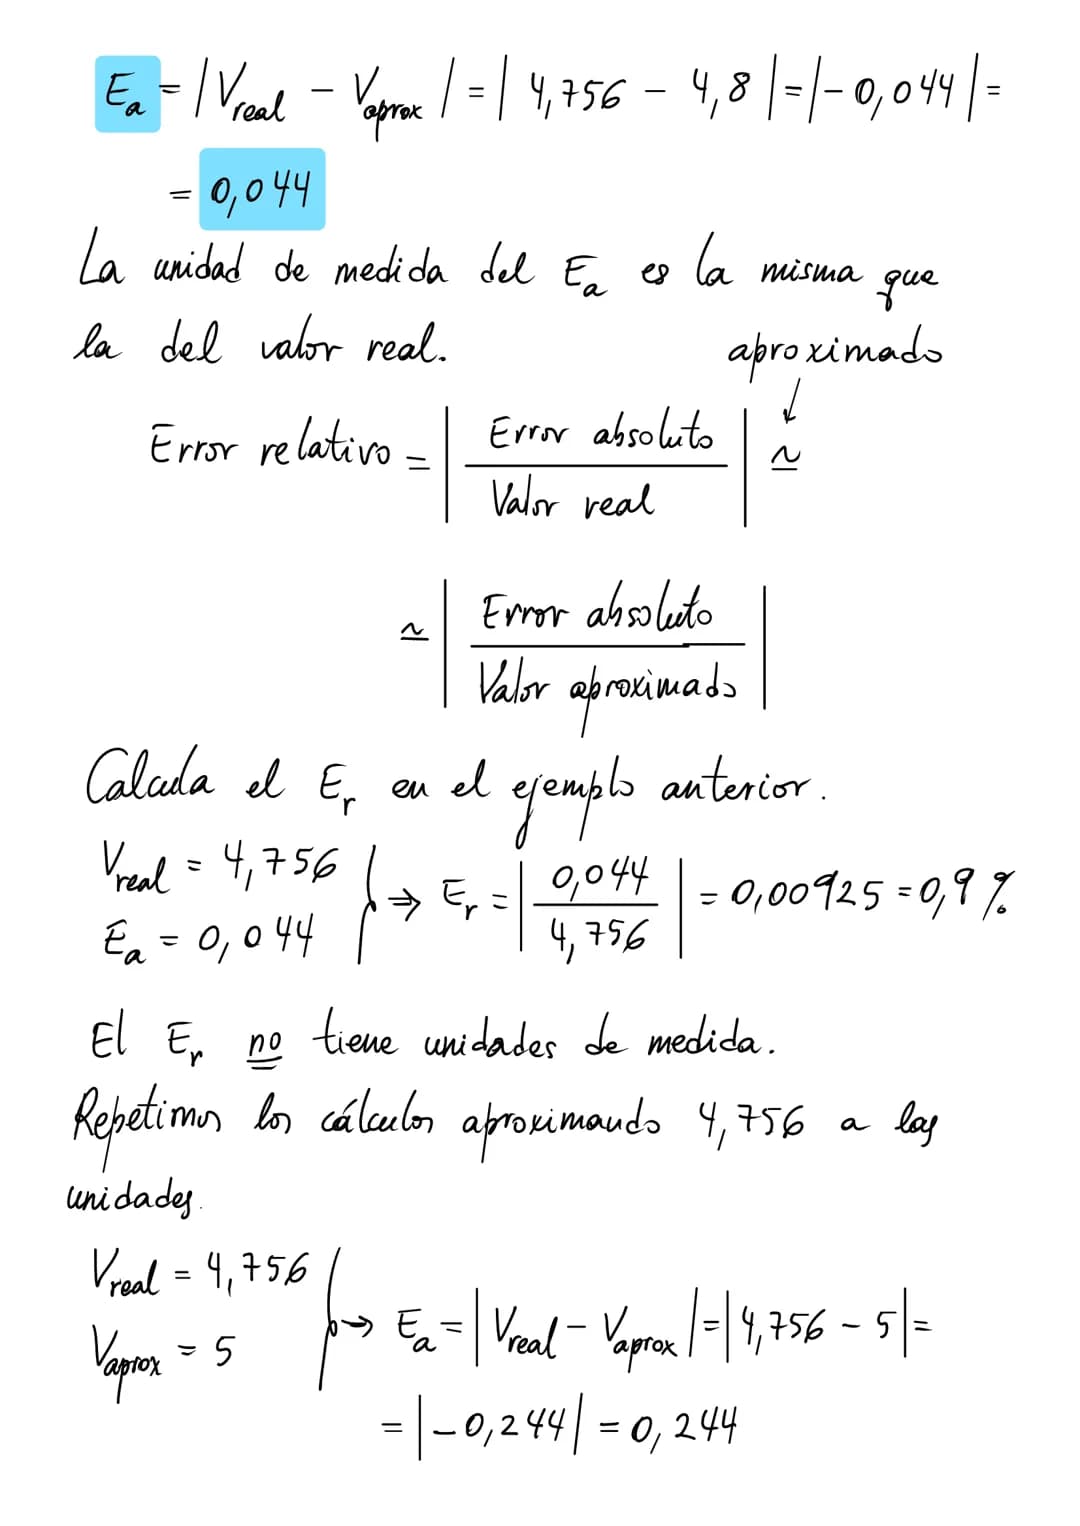 Ea = |Vreal - Vaprox| = |4,756 - 4,8| = |-0,044| =
= 0,044
La unidad de medida del Ea es la misma que
la del valor real.
aproximado
↓
Error relativo = | Error absoluto / Valor real | ≃
≃ | Error absoluto / Valor aproximado |
Calcula el Er en el ejemplo anterior.
Vreal = 4,756
Ea = 0,044
⇒ Er = | 0,044 / 4,756 | = 0,00925 = 0,9 %
El Er no tiene unidades de medida.
Repetimos los cálculos aproximando 4,756 a las
unidades.
Vreal = 4,756
Vaprox = 5
→ Ea = |Vreal - Vaprox| = |4,756 - 5| =
= |-0,244| = 0,244